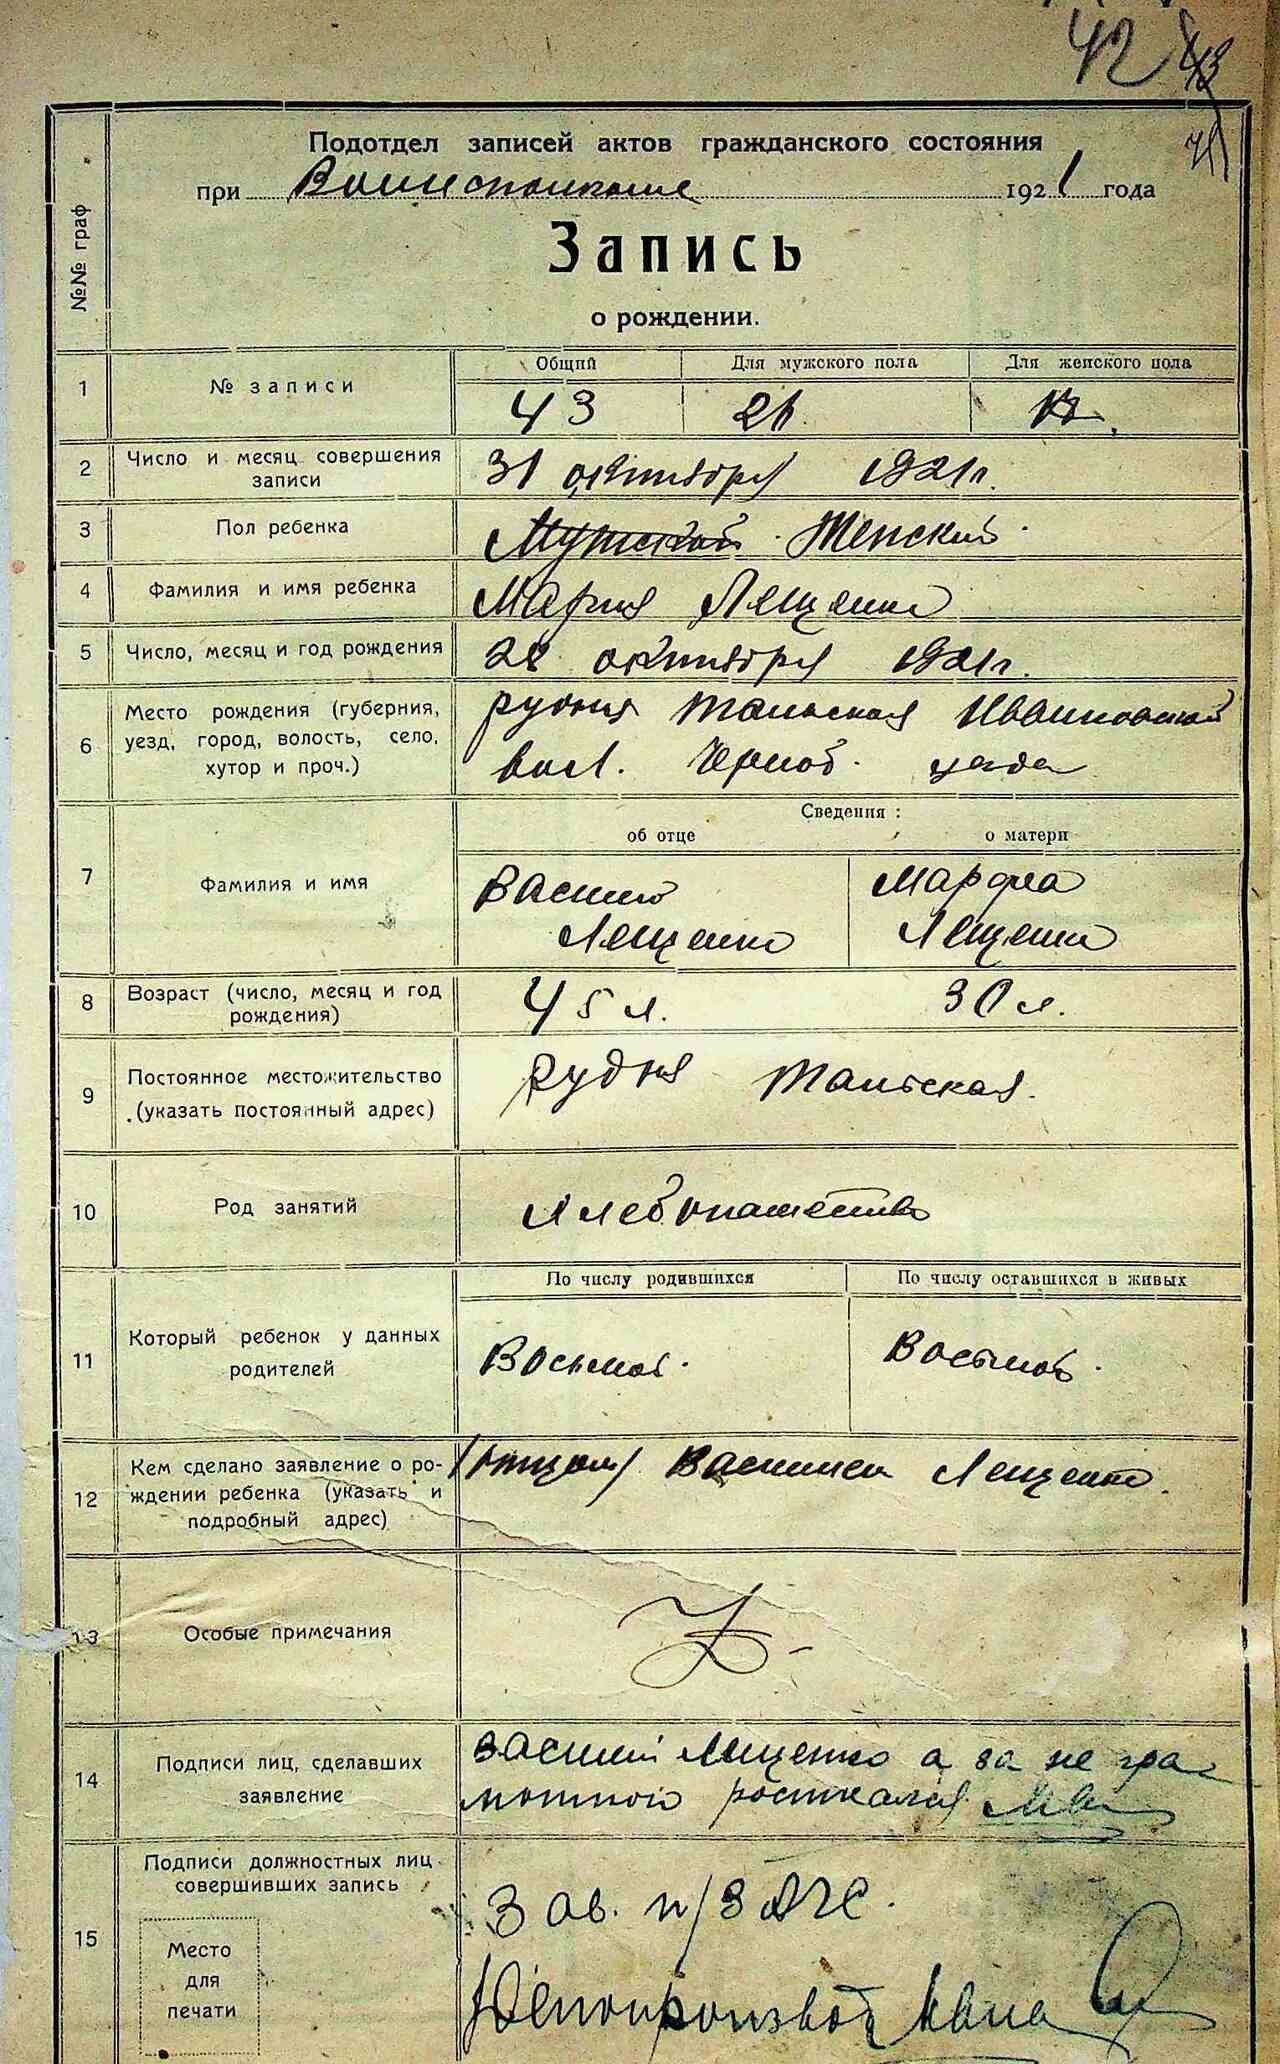 42 43
Подотдел записей актов гражданского состояния
при Волисполкоме 1921 года
Запись
о рождении.
№№ граф
Общий Для мужского пола Для женского пола
1 № записи 43 21.
2 Число и месяц совершения
записи
31 октября 1921 г.
3 Пол ребенка Мужской Женский
4 Фамилия и имя ребенка Мария Лещенко
5 Число, месяц и год рождения 28 октября 1921 г.
6 Место рождения (губерния,
уезд, город, волость, село,
хутор и проч.)
рудня Тальская Иванковской
вол. Черноб. уезда
Сведения:
об отце о матери
7 Фамилия и имя
Василий Марфа
Лещенко Лещенко
8 Возраст (число, месяц и год
рождения)
45 л. 30 л.
9 Постоянное местожительство
(указать постоянный адрес)
рудня Тальская.
10 Род занятий Хлебопашество
По числу родившихся По числу оставшихся в живых
11 Который ребенок у данных
родителей
Восьмой. Восьмой.
12 Кем сделано заявление о ро-
ждении ребенка (указать и
подробный адрес)
(отцом) Василием Лещенко.
13 Особые примечания
14 Подписи лиц, сделавших
заявление
Василий Лещенко а за не гра
мотного
15 Подписи должностных лиц
совершивших запись
Место
для
печати
Зав. п/ЗАГС.
Делопроизвод